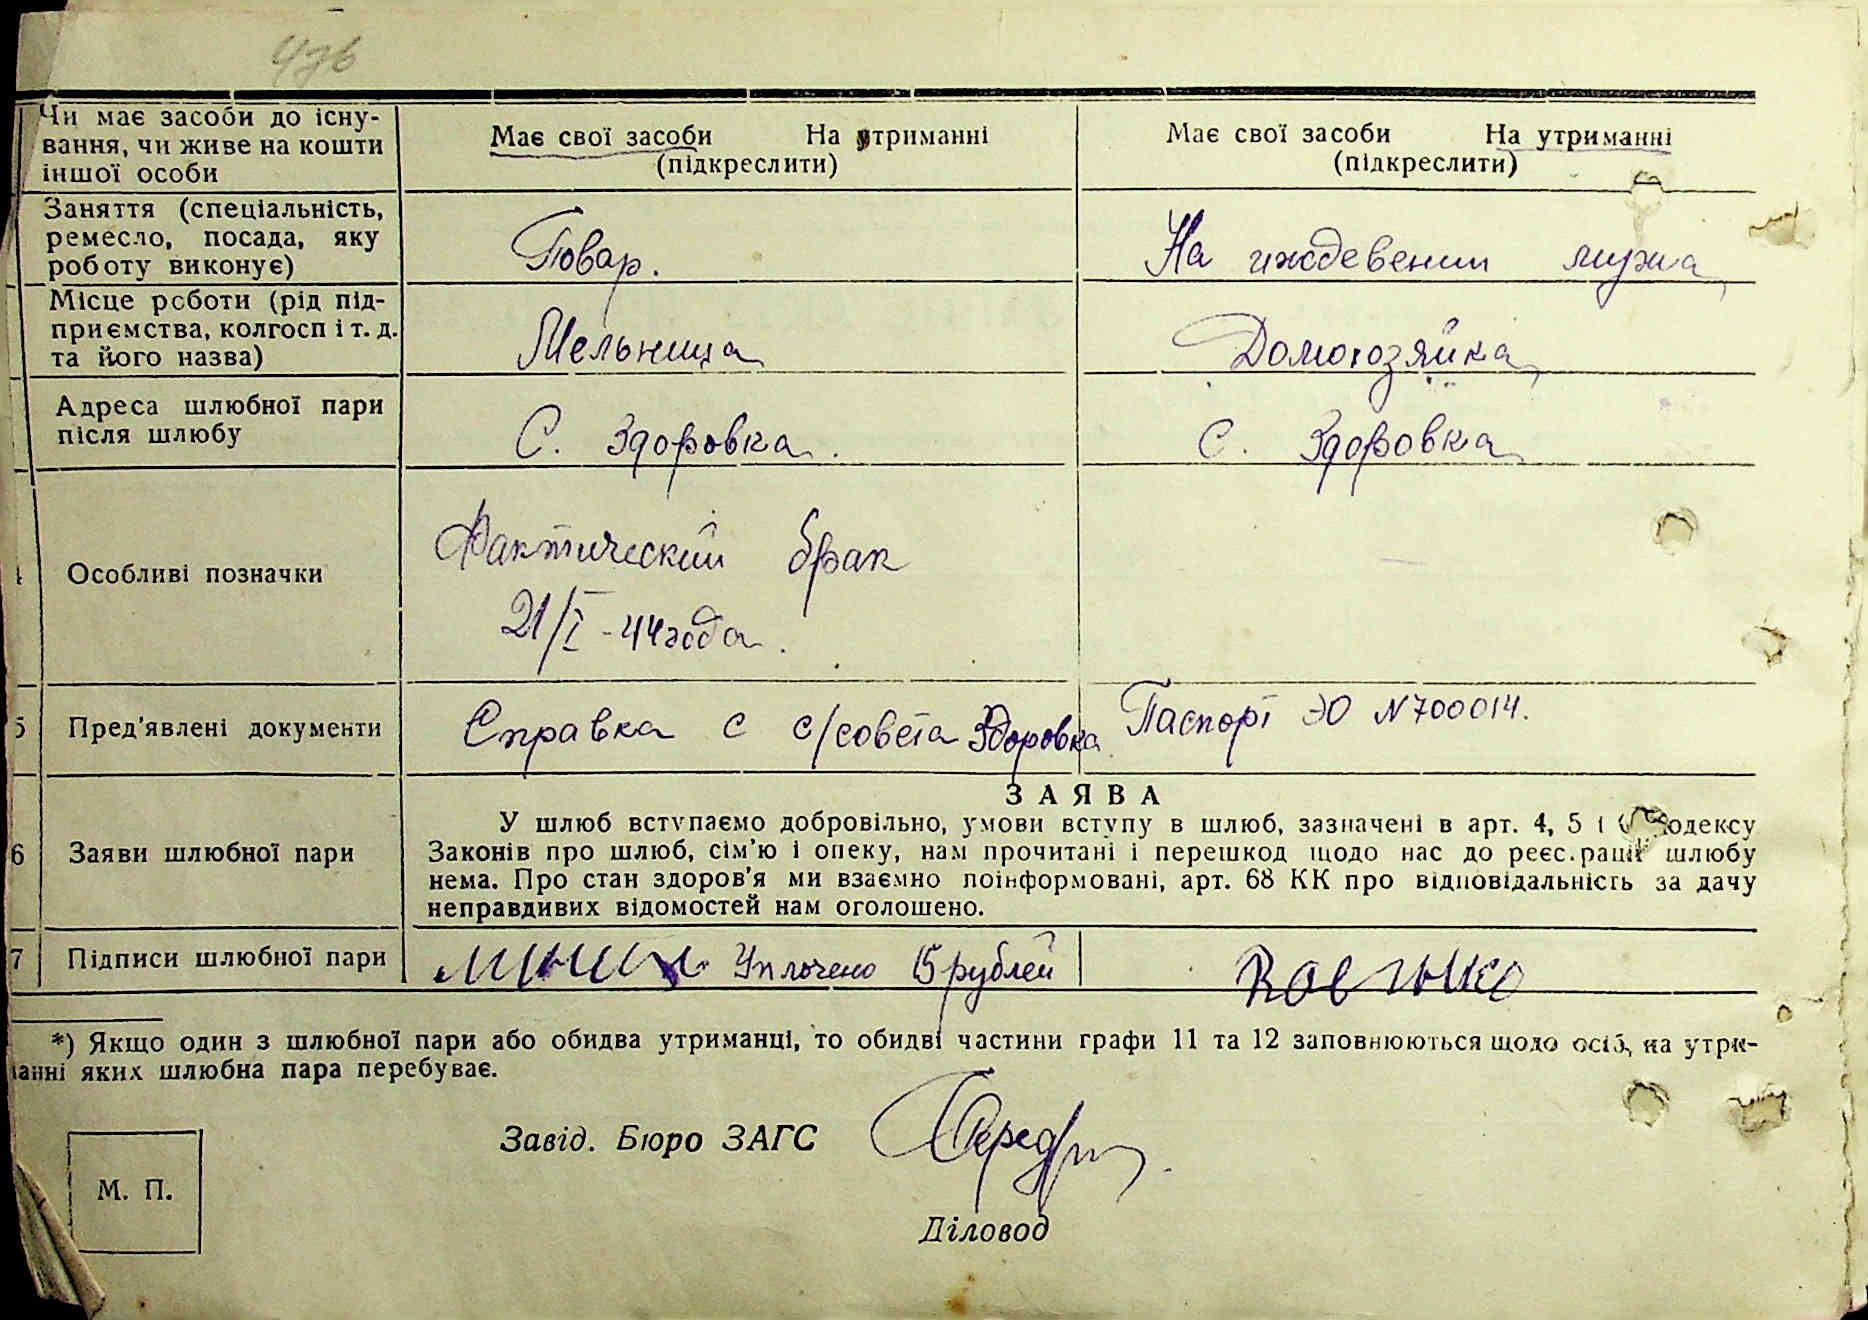 Чи має засоби до існу-
вання, чи живе на кошти
іншої особи
Має свої засоби На утриманні
(підкреслити)
Має свої засоби На утриманні
(підкреслити)
Заняття (спеціальність,
ремесло, посада, яку
роботу виконує)
Повар.
На иждевении мужа
Місце роботи (рід під-
приємства, колгосп і т. д.
та його назва)
Мельница
Домохозяйка
Адреса шлюбної пари
після шлюбу
С. Здоровка.
С. Здоровка
Особливі позначки
Фактический брак
21/I - 44 года.
5 Пред'явлені документи
Справка с с/совета Здоровка
Паспорт ЭО N 700014.
6 Заяви шлюбної пари
ЗАЯВА
У шлюб вступаємо добровільно, умови вступу в шлюб, зазначені в арт. 4, 5 і одексу
Законів про шлюб, сім'ю і опеку, нам прочитані і перешкод щодо нас до реєс.рації шлюбу
нема. Про стан здоров'я ми взаємно поінформовані, арт. 68 КК про відповідальність за дачу
неправдивих відомостей нам оголошено.
7 Підписи шлюбної пари
Уплочено 15 рублей
*) Якщо один з шлюбної пари або обидва утриманці, то обидві частини графи 11 та 12 заповнюються щодо осіб, на утри-
анні яких шлюбна пара перебуває.
Завід. Бюро ЗАГС
М. П.
Діловод